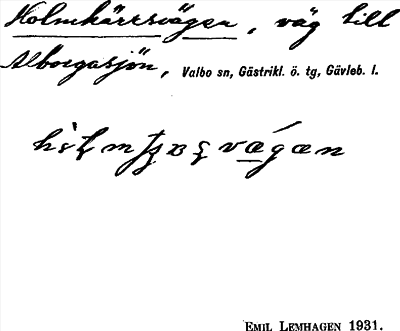 Holmkärrsvägen, väg till
Alborgasjön, Valbo sn, Gästrikl. ö. tg, Gävleb. l.
EMIL LEMHAGEN 1931.